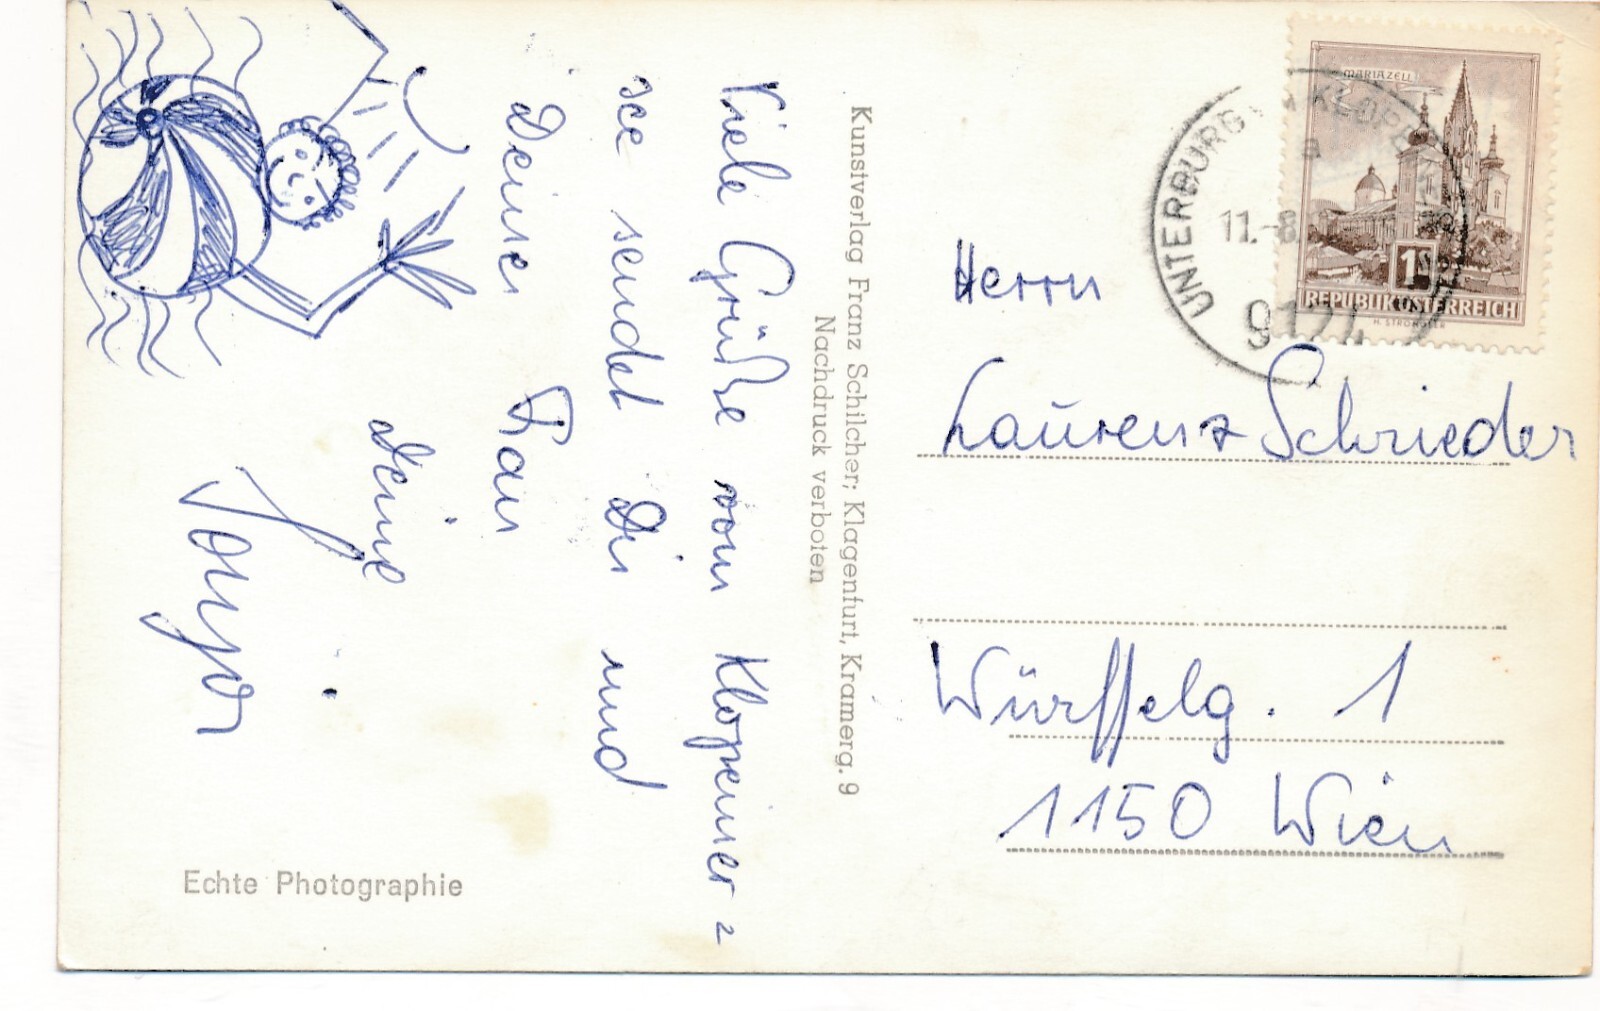 Viele Grüße vom Klopeiner-
see sendet Dir und
Deiner Frau
deine
Kunstverlag Franz Schilcher, Klagenfurt, Kramerg. 9
Nachdruck verboten
Echte Photographie
MARIAZELL
1S
REPUBLIK ÖSTERREICH
UNTERBURG
11.-8.
Herrn
Laurenz Schrieder
Würffelg. 1
1150 Wien